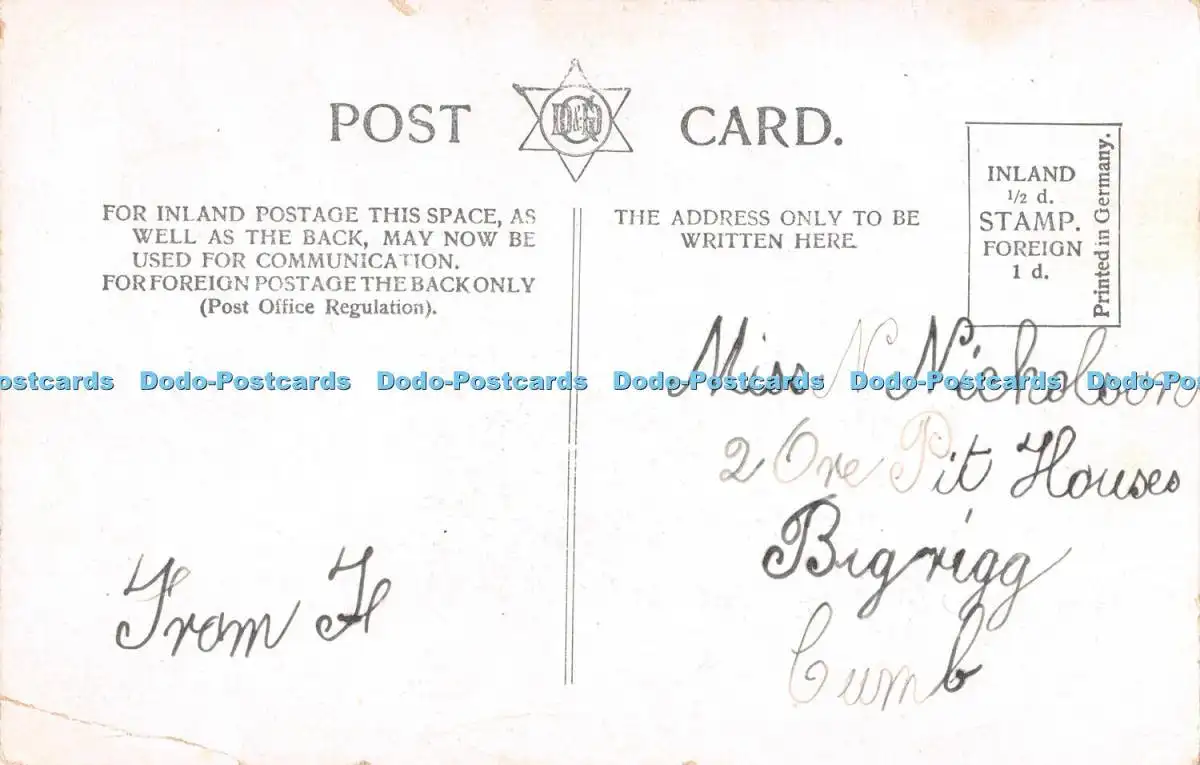 POST CARD.
D&G
INLAND
½ d.
STAMP.
FOREIGN
1 d.
Printed in Germany.
FOR INLAND POSTAGE THIS SPACE, AS
WELL AS THE BACK, MAY NOW BE
USED FOR COMMUNICATION.
FOR FOREIGN POSTAGE THE BACK ONLY
(Post Office Regulation).
THE ADDRESS ONLY TO BE
WRITTEN HERE
Miss N Nicholson
2 Ore Pit Houses
Bigrigg
Cumb
From H
ostcards Dodo-Postcards Dodo-Postcards Dodo-Postcards Dodo-Postcards Dodo-Post